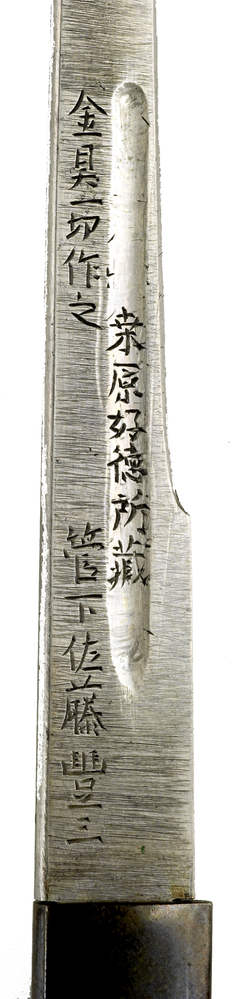 桒原好德所藏
金具一切作之
管下佐藤豊三